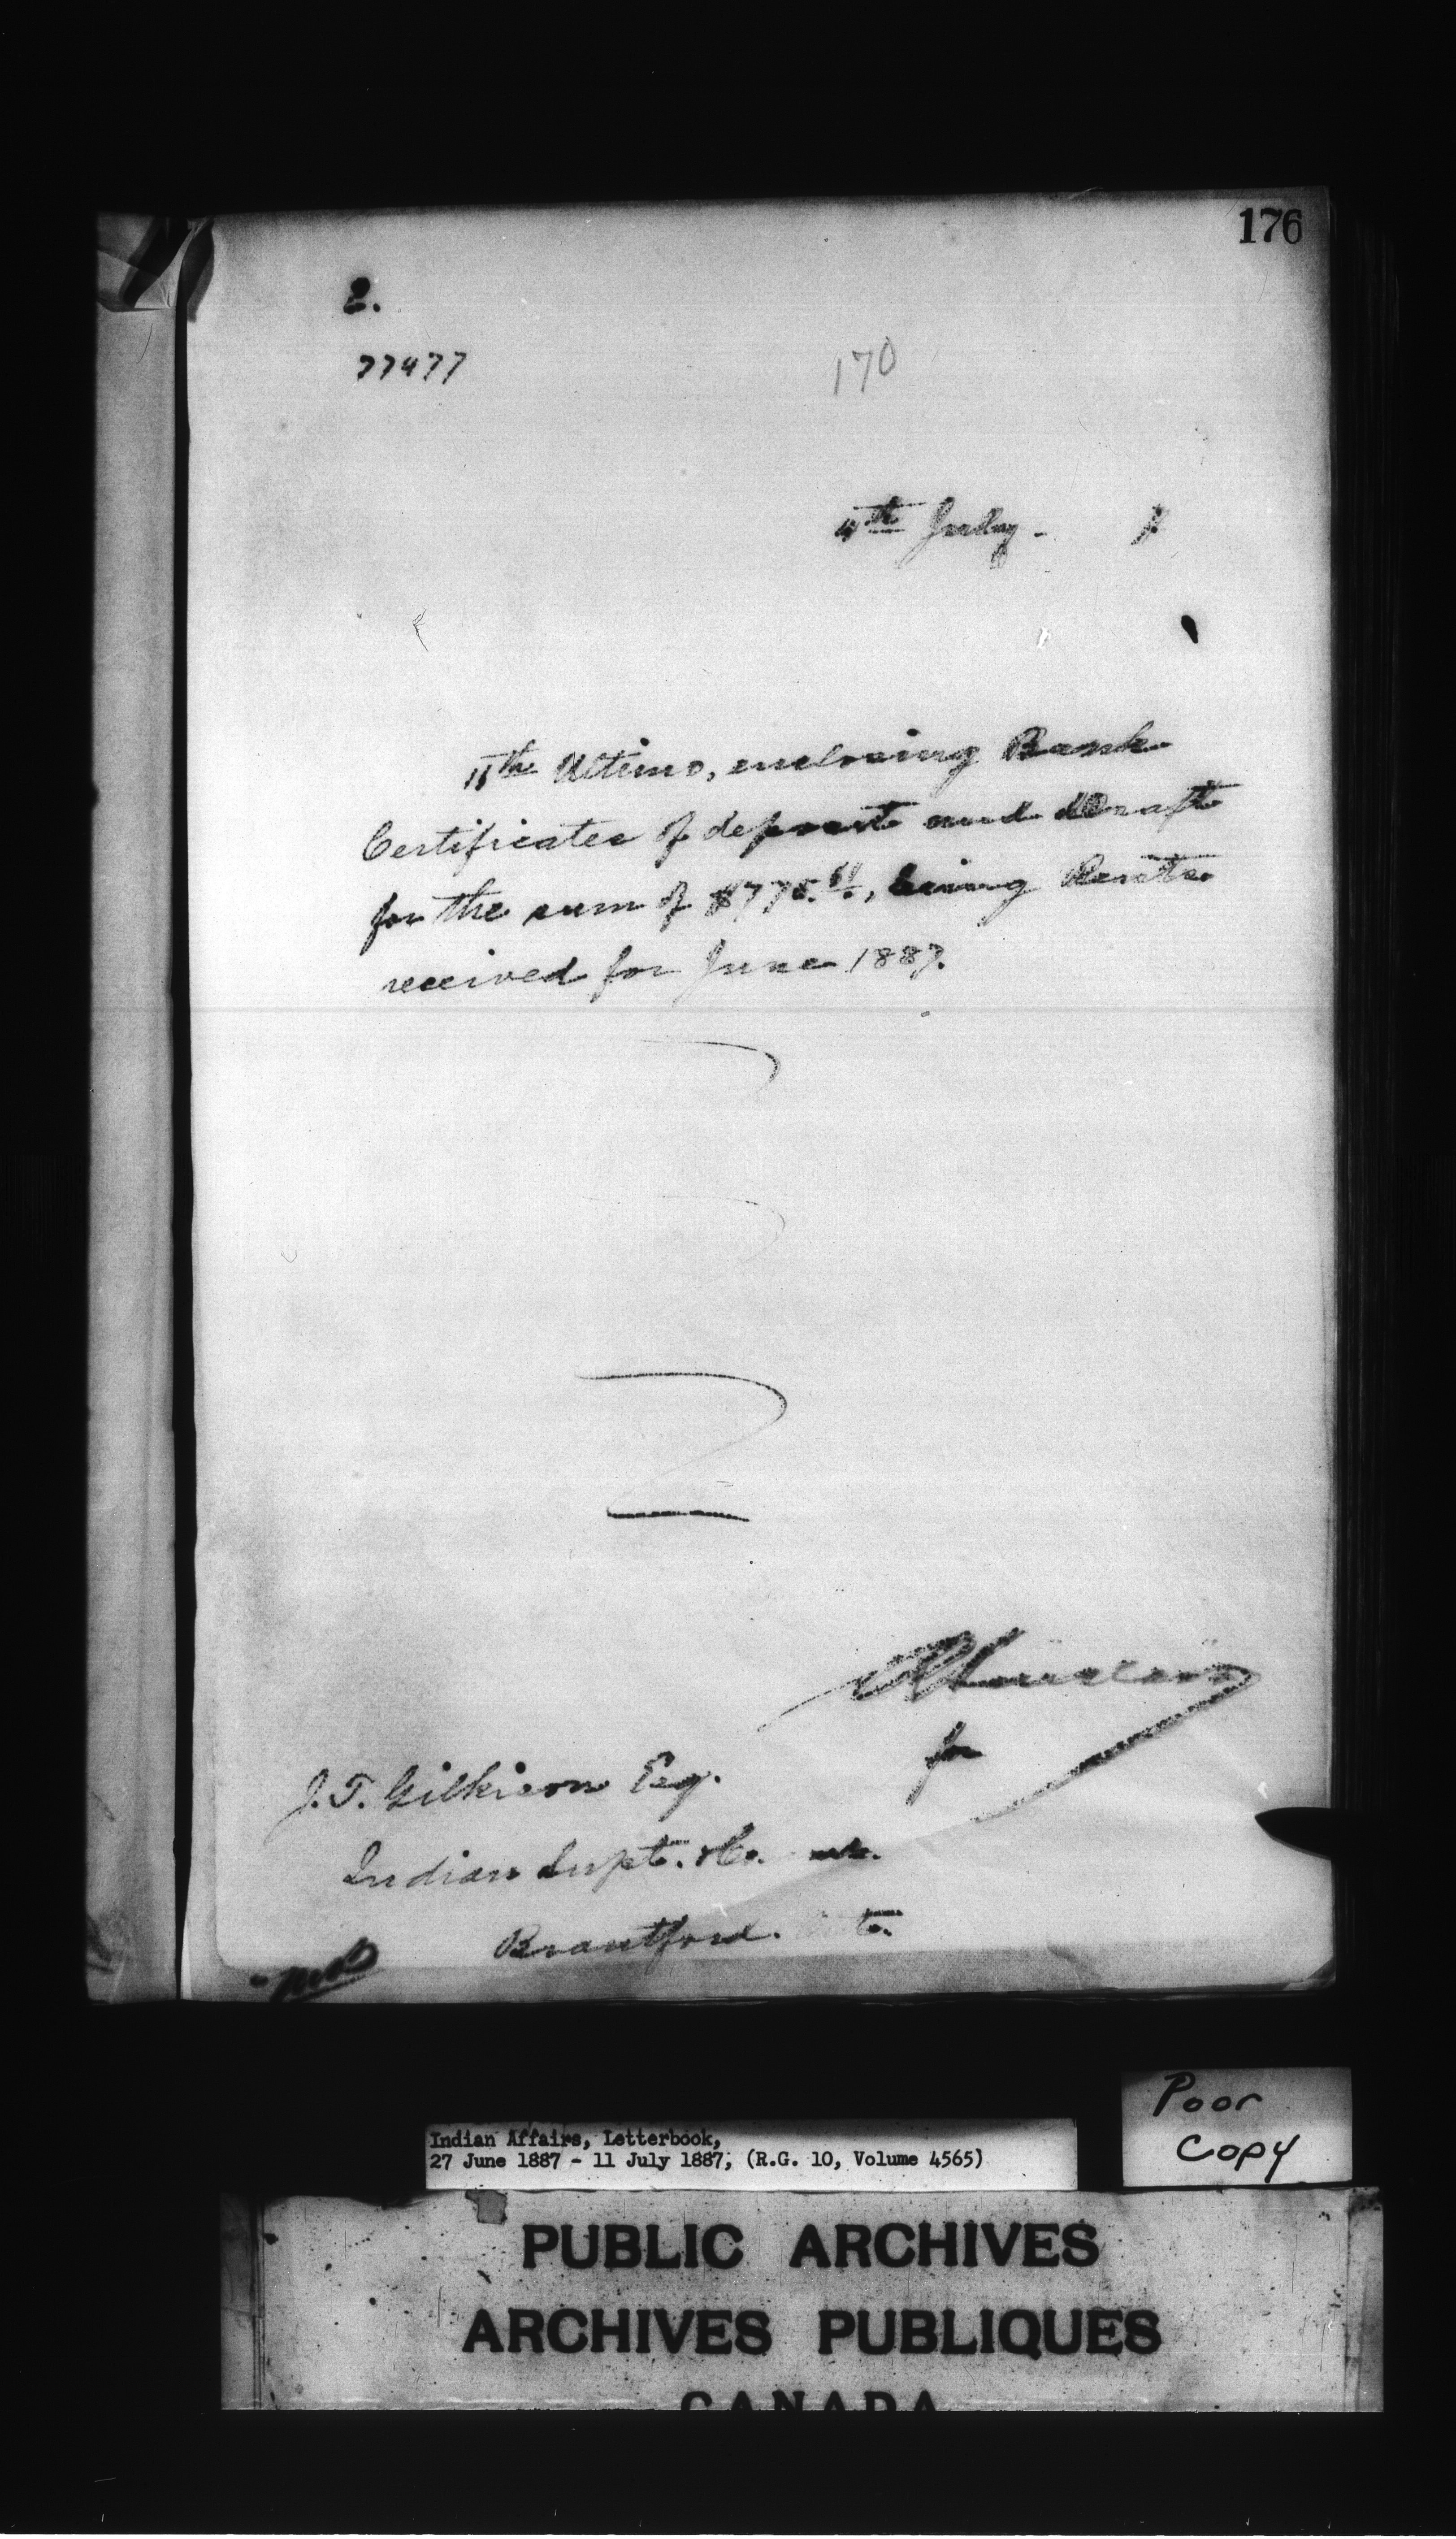 176
2.
77477
170
4th July - 7
11th Ultimo, enclosing Bank
Certificates of deposit and draft
for the sum of $775.61, being Rents
received for June 1887.
for
J. T. Gilkison Esq.
Indian Supt. &c.
Brantford.
Indian Affairs, Letterbook,
27 June 1887 - 11 July 1887, (R.G. 10, Volume 4565)
Poor
Copy
PUBLIC ARCHIVES
ARCHIVES PUBLIQUES
CANADA